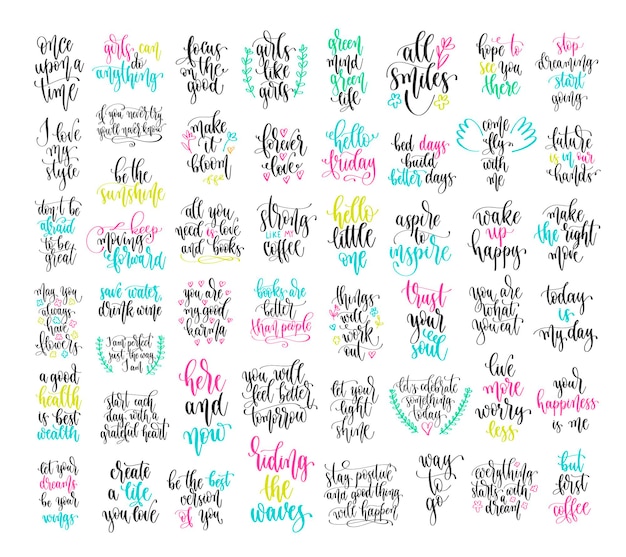 once
upon a
time
girls can
do
anything
focus
on the
good
girls
like
girls
green
mind
green
life
all
smiles
hope to
see you
there
stop
dreaming
start
going
I love
my
style
if you never try
you'll never know
be the
sunshine
make
it
bloom
forever
love
hello
friday
bad days
build
better days
come
fly
with
me
future
is in our
hands
don't be
afraid
to be
great
keep
moving
forward
all you
need is love
and books
strong
LIKE MY
coffee
hello
little
one
aspire
to
inspire
wake
up
happy
make
the right
move
may you
always
have
flowers
save water,
drink wine
I am perfect
just the way
I am
you are
my good
karma
books are
better
than people
things
will
work
out
trust
your
soul
you are
what
you eat
today
is
my day
a good
health
is best
wealth
start each
day with a
grateful heart
here
and
now
you will
feel better
tomorrow
let your
light
shine
let's celebrate
something
today
live
more
worry
less
your
happiness
is me
let your
dreams
be your
wings
create
a life
you love
be the best
version
of you
riding
the
waves
stay positive
and good things
will happen
way
to
go
everything
starts with
dream
but
first
coffee